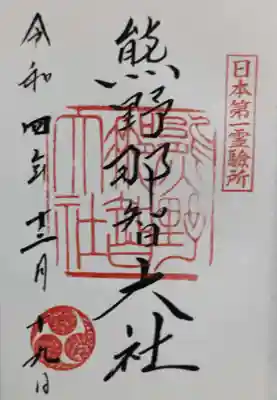 日本第一霊験所
熊野那智大社
令和四年十二月十九日